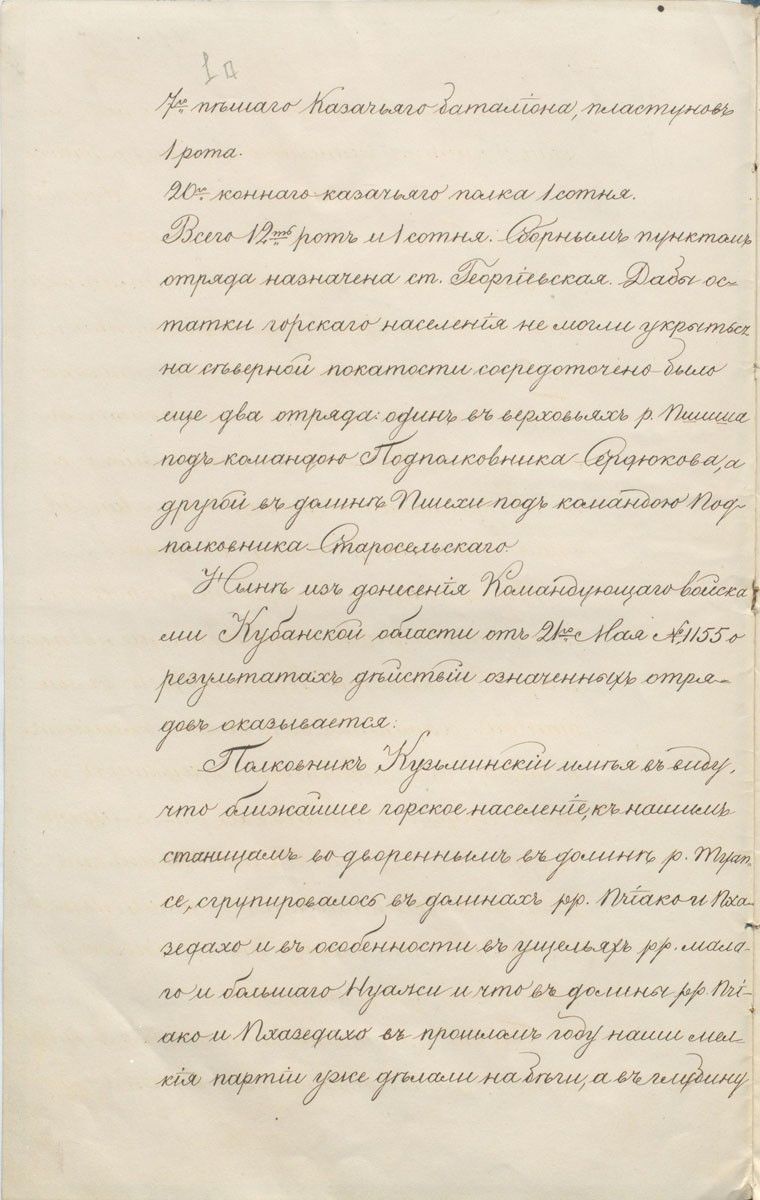 7го пѣшаго Казачьяго баталіона, пластуновъ
1 рота.
20го коннаго казачьяго полка 1 сотня.
Всего 12ть ротъ и 1 сотня. Сборнымъ пунктомъ
отряда назначена ст. Георгіевская. Дабы ос-
татки горскаго населенія не могли укрыться
на сѣверной покатости сосредоточено было
еще два отряда: одинъ въ верховьяхъ р. Пшиша
подъ командою Подполковника Сердюкова, а
другой въ долинѣ Пшехи подъ командою Под-
полковника Старосельскаго
Нынѣ изъ донесенія Командующаго войска
ми Кубанской области отъ 21го Мая № 1155 о
результатахъ дѣйствій означенныхъ отря-
довъ оказывается:
Полковникъ Кузьминскій имѣя въ виду,
что ближайшее горское населеніе, къ нашимъ
станицамъ водвореннымъ въ долинѣ р. Туап-
се, сгрупировалось въ долинахъ рр. Пчіако и Пха-
зедахо и въ особенности въ ущельяхъ рр. мала-
го и большаго Нуажи и что въ долины рр. Пчі-
ако и Пхазедахо въ прошломъ году наши мел-
кія партіи уже дѣлали набѣги, а въ глубину